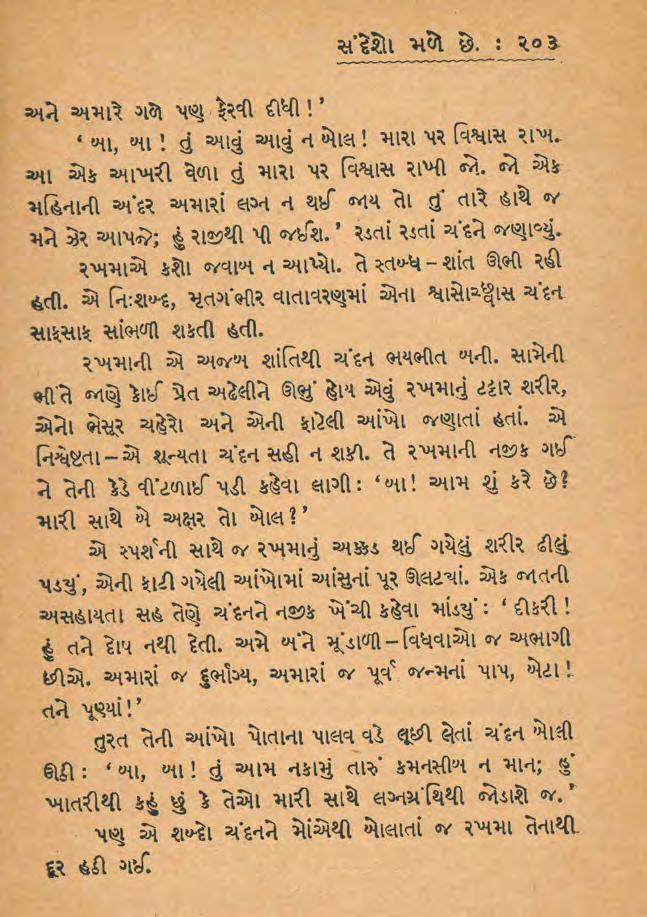 સંદેશો મળે છે. : ૨૦૩
અને અમારે ગળે પણ ફેરવી દીધી!’
‘ બા, બા ! તું આવું આવું ન બોલ! મારા પર વિશ્વાસ રાખ.
આ એક આખરી વેળા તું મારા પર વિશ્વાસ રાખી જો. જો એક
મહિનાની અંદર અમારાં લગ્ન ન થઈ જાય તો તું તારે હાથે જ
મને ઝેર આપજે; હું રાજીથી પી જઈશ.’ રડતાં રડતાં ચંદને જણાવ્યું.
રખમાએ કશો જવાબ ન આપ્યો. તે સ્તબ્ધ – શાંત ઊભી રહી
હતી. એ નિઃશબ્દ, મૃતગંભીર વાતાવરણમાં એના શ્વાસોચ્છ્વાસ ચંદન
સાફસાફ સાંભળી શકતી હતી.
રખમાની એ અજબ શાંતિથી ચંદન ભયભીત બની. સામેની
ભીંતે જાણે કોઈ પ્રેત અઢેલીને ઊભું હોય એવું રખમાનું ટટ્ટાર શરીર,
એનો ભેસૂર ચહેરો અને એની ફાટેલી આંખો જણાતાં હતાં. એ
નિશ્ચેષ્ટતા – એ શૂન્યતા ચંદન સહી ન શકી. તે રખમાની નજીક ગઈ
ને તેની કેડે વીંટળાઈ પડી કહેવા લાગી : ‘બા! આમ શું કરે છે?
મારી સાથે બે અક્ષર તો બોલ?’
એ સ્પર્શની સાથે જ રખમાનું અક્કડ થઈ ગયેલું શરીર ઢીલું
પડયું, એની ફાટી ગયેલી આંખોમાં આંસુનાં પૂર ઊલટયાં. એક જાતની
અસહાયતા સહ તેણે ચંદનને નજીક ખેંચી કહેવા માંડયું : ‘ દીકરી !
હું તને દોષ નથી દેતી. અમે બંને મૂંડાળી – વિધવાઓ જ અભાગી
છીએ. અમારાં જ દુર્ભાગ્ય, અમારાં જ પૂર્વ જન્મનાં પાપ, બેટા!
તને પૂણ્યાં!’
તુરત તેની આંખો પોતાના પાલવ વડે લૂછી લેતાં ચંદન બોલી
ઊઠી : ‘બા, બા! તું આમ નકામું તારું કમનસીબ ન માન; હું
ખાતરીથી કહું છું કે તેઓ મારી સાથે લગ્નગ્રંથિથી જોડાશે જ.’
પણ એ શબ્દો ચંદનને મોંએથી બોલાતાં જ રખમા તેનાથી
દૂર હઠી ગઈ.